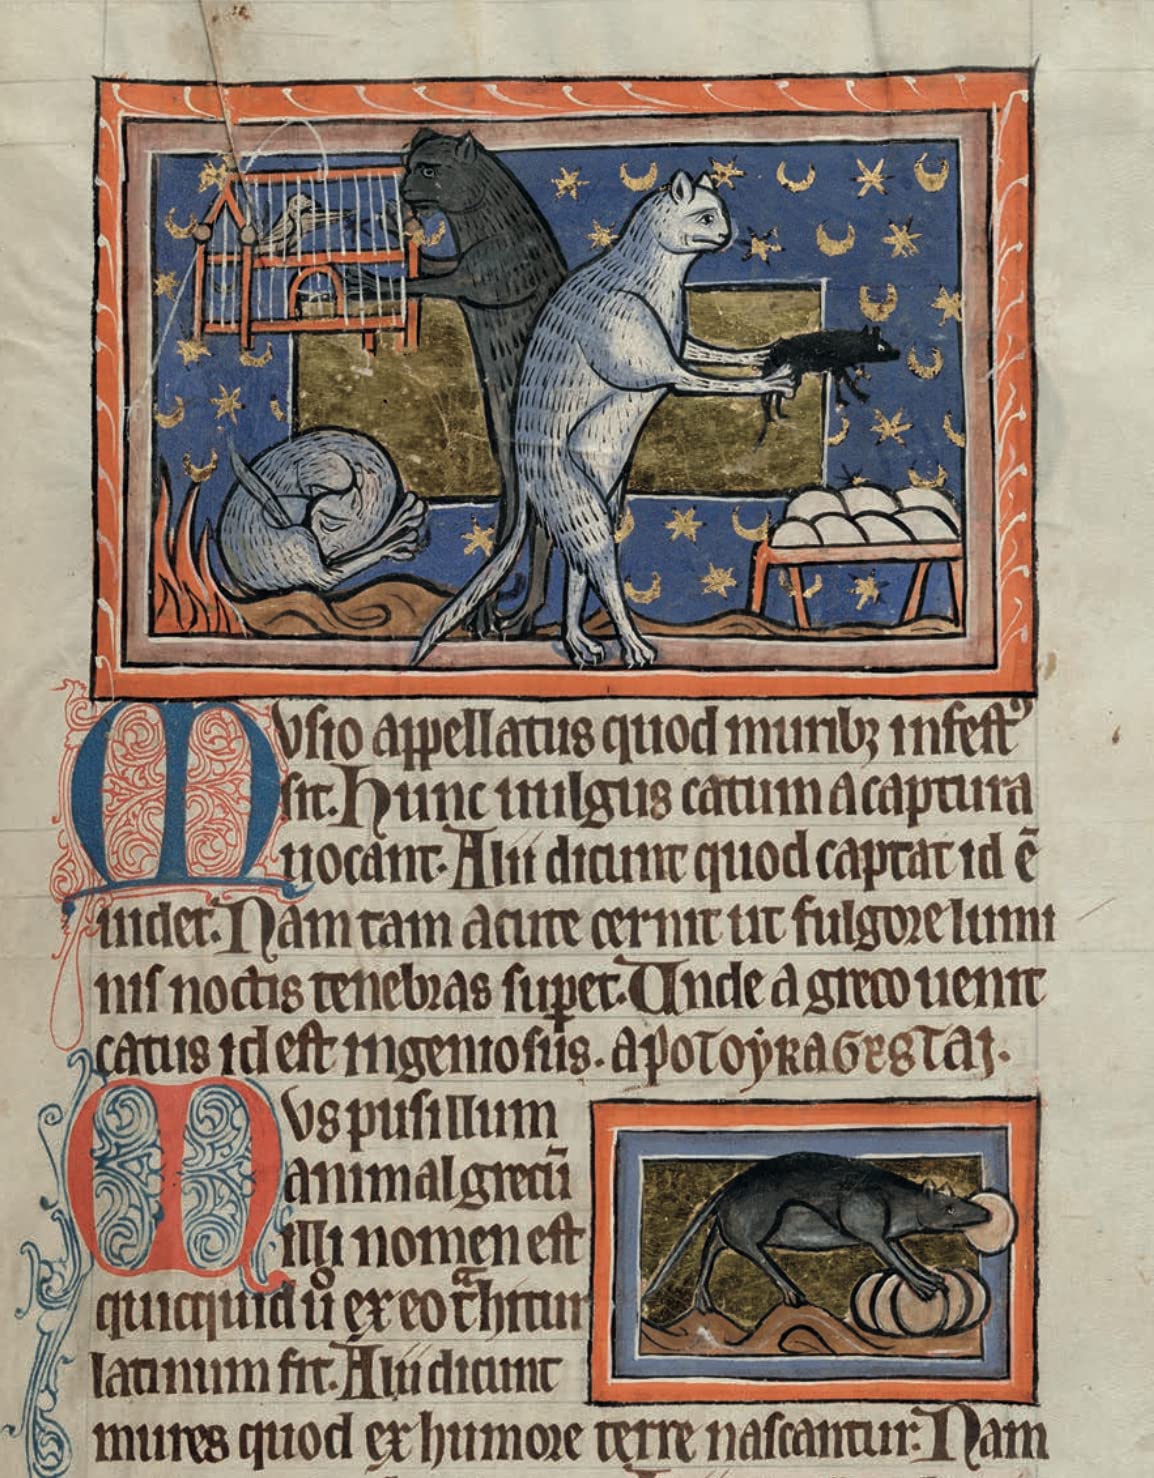 Musio appellatus quod muribꝫ infestꝰ
sit. Hunc uulgus catum a captura
uocant. Alii dicunt quod captat id ē
uidet. Nam tam acute cernit ut fulgore lumi
nis noctis tenebras suꝑet. Unde a greco uenit
catus id est ingeniosus. apotoẏkagestaj.
Mus pusillum
animal grecū
illi nomen est
quicquid ů ex eo tͣhitur
latinum fit. Alii dicunt
mures quod ex humore terre nascantur. Nam